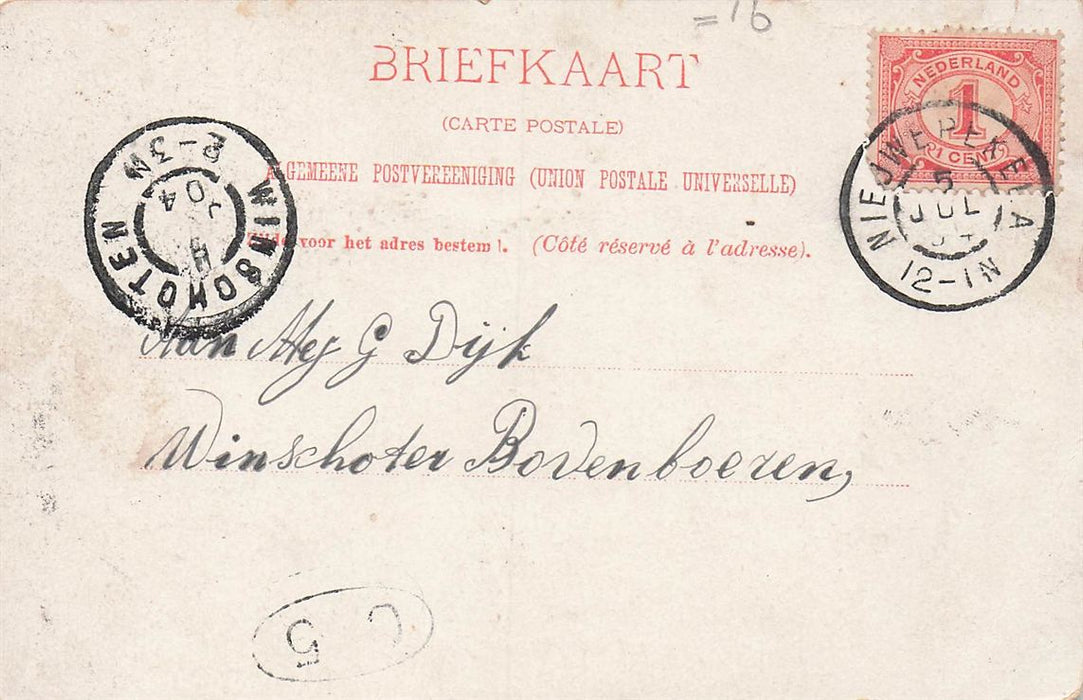 =16
BRIEFKAART
(CARTE POSTALE)
ALGEMEENE POSTVEREENIGING (UNION POSTALE UNIVERSELLE)
Zijde voor het adres bestemd. (Côté réservé à l'adresse).
NEDERLAND
1
1 CENT
NIEUWE PEKELA
5 JUL 04
12-1N
WINSCHOTEN
2-3N
5 J 04
Aan Mej G Dijk
Winschoter Bovenboeren,
C 5